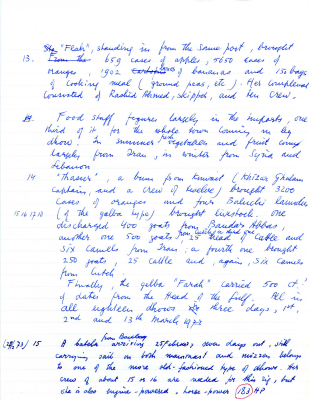 "Flah", standing in from the same port, brought
13. 659 cases of apples, 5650 cases of
oranges, 1902 cases of bananas and 150 bags
of cooking meal (ground peas, etc). Her complement
consisted of Rashid Ahmed, skipper, and ten Crew.
Food stuff figures largely in the imports, one
third of it, for the whole town coming in by
dhow. In summer fresh vegetables and fruit come
largely from Iran, in winter from Syria and
Lebanon
14 "Thaseer", a bum from Kuwait (Khizar Ghulam
Captain, and a crew of twelve) brought 3200
cases of oranges and four Baluchi launches
15 16 17 18 (of the galba type) brought livestock. One
discharged 400 goats from Bandar Abbas,
another one 500 goats, 25 head of cattle and
six camels from Iran, a fourth one brought
250 goats, 25 cattle and, again, six camels
from Cutch.
Finally, the galba "Farah" carried 500 ct.
of dates from the Head of the Gulf. All in
all eighteen dhows three days, 1st,
2nd and 13th March 1973
15 A batela from Bombay arriving 25 days, seven days out, still
carrying sail on both mainmast and mizzen belongs
to one of the more old-fashioned type of dhows. Her
crew of about 15 or 16 are needed for this rig, but
she is also engine-powered, horse-power 183 HP